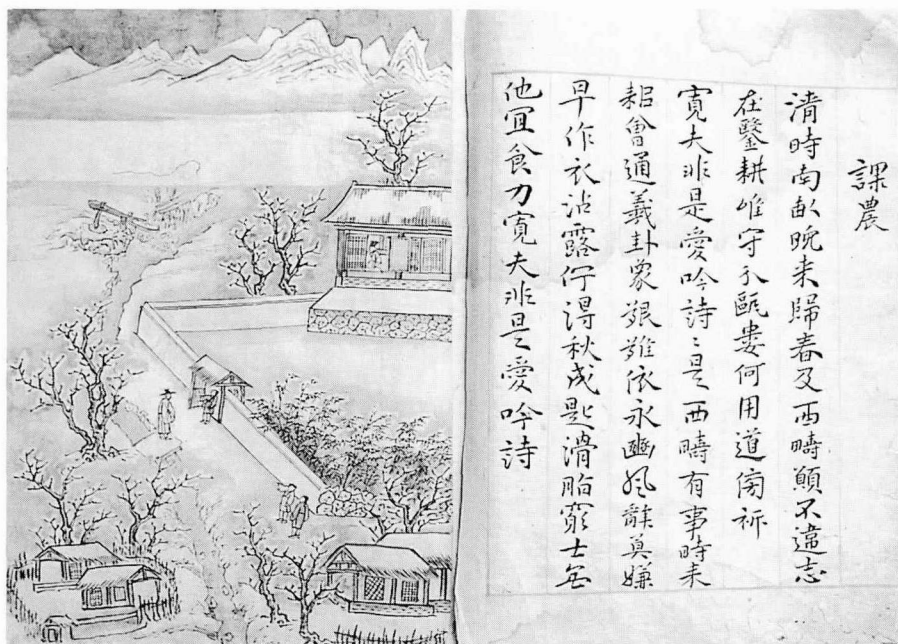 課農
清時南畝晚来歸春及西疇願不違志
在鑿耕唯守分甌婁何用道傍祈
寬夫非是愛吟詩〻是西疇有事時耒
耜會通羲卦象艱難依永豳風辭莫嫌
早作衣沾露佇得秋成匙滑脂窮士無
他宜食力寬夫非是愛吟詩